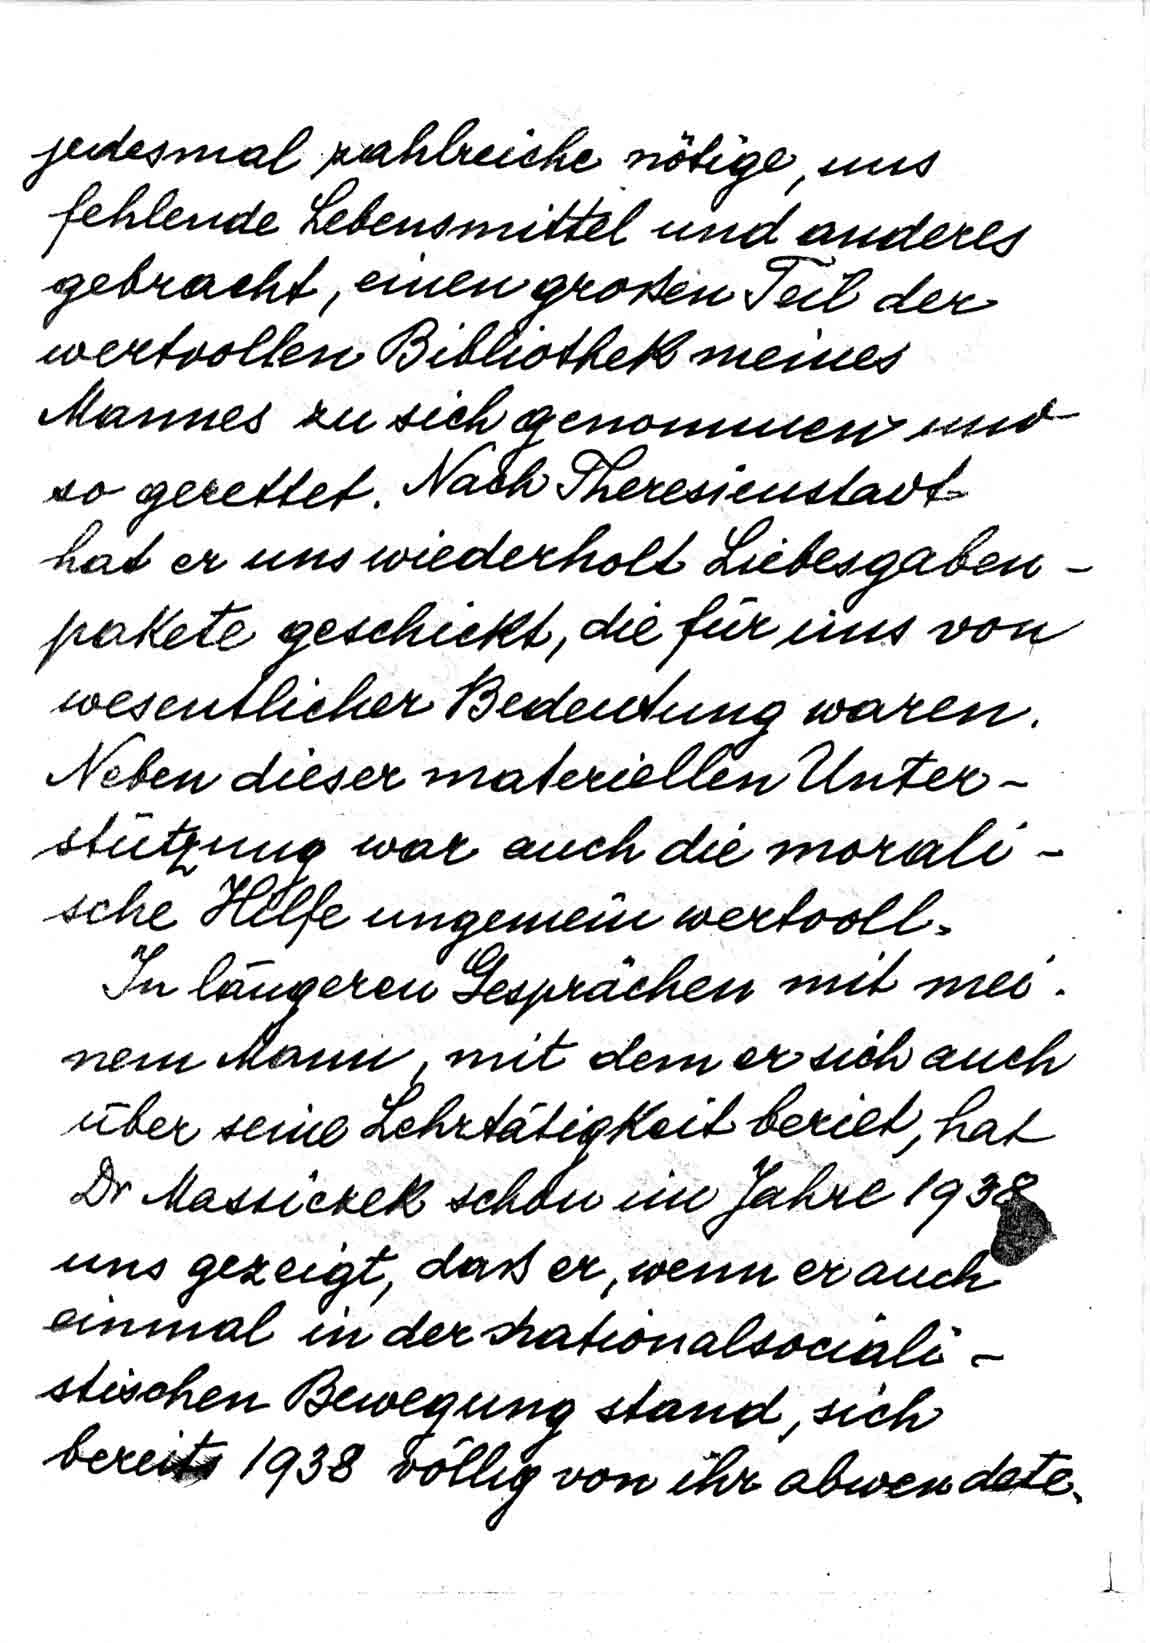 jedesmal zahlreiche nötige, uns
fehlende Lebensmittel und anderes
gebracht, einen großen Teil der
wertvollen Bibliothek meines
Mannes zu sich genommen und
so gerettet. Nach Theresienstadt
hat er uns wiederholt Liebesgaben-
pakete geschickt, die für uns von
wesentlicher Bedeutung waren.
Neben dieser materiellen Unter-
stützung war auch die morali-
sche Hilfe ungemein wertvoll.
In längeren Gesprächen mit mei-
nem Mann, mit dem er sich auch
über seine Lehrtätigkeit beriet, hat
Dr Massiczek schon im Jahre 1938
uns gezeigt, daß er, wenn er auch
einmal in der nationalsociali-
stischen Bewegung stand, sich
bereits 1938 völlig von ihr abwendete.